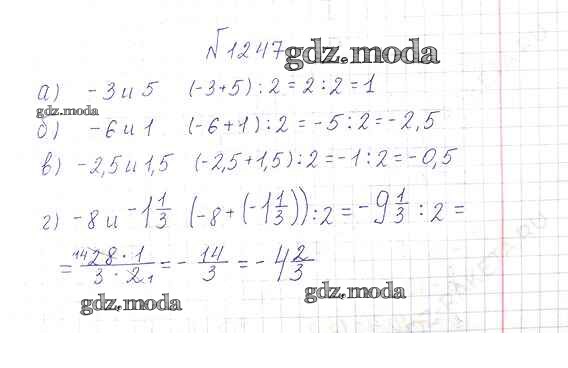 №1247 gdz.moda
а) -3 и 5 (-3+5):2=2:2=1
gdz.moda
б) -6 и 1 (-6+1):2=-5:2=-2,5
в) -2,5 и 1,5 (-2,5+1,5):2=-1:2=-0,5
г) -8 и -1 1/3 (-8+(-1 1/3)):2=-9 1/3:2=
= 14 28·1/3·2 1 = -14/3 = -4 2/3
gdz.moda gdz.moda